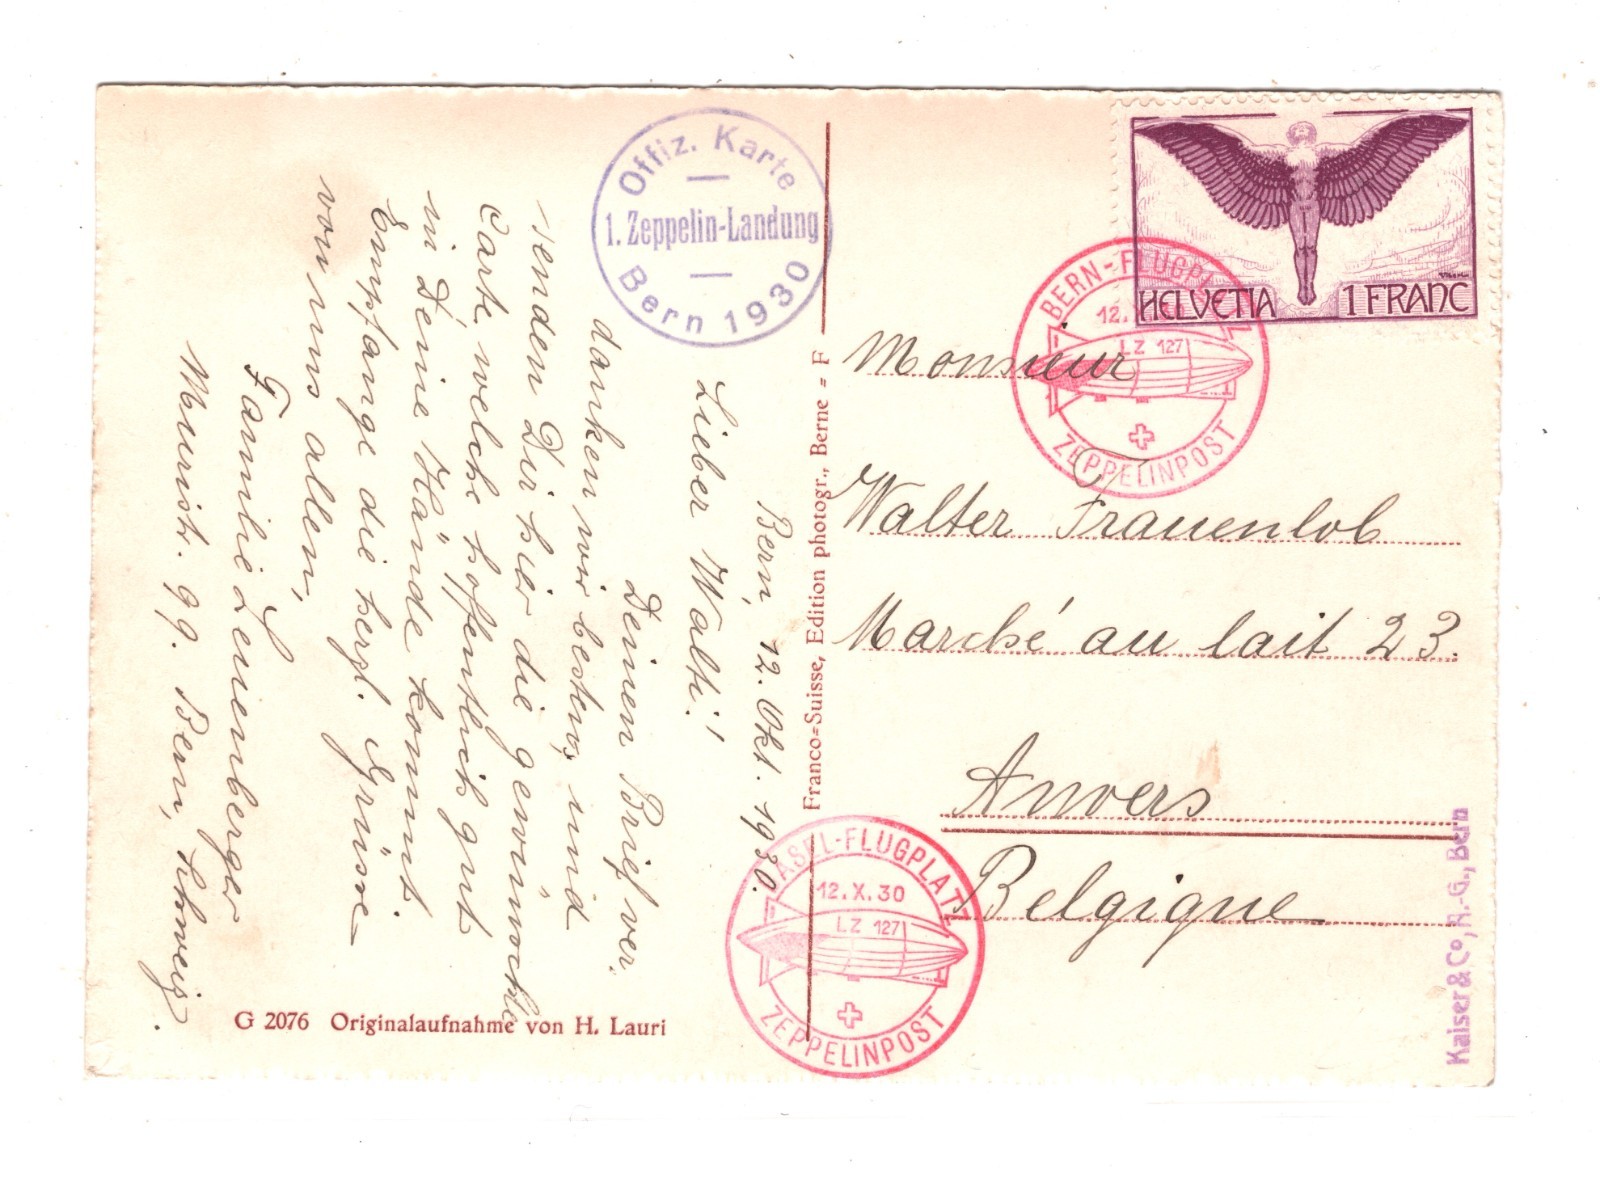 Offiz. Karte
1. Zeppelin-Landung
Bern 1930
Bern, 12. Okt. 1930.
Lieber Walti!
Deinen Brief ver.
danken wir bestens, und
senden Dir hier die gewünschte
Carte, welche hoffentlich gut
in Deine Hände kommt.
Empfange die herzl. Grüsse
von uns allen,
Familie Leuenberger
Muristr. 99. Bern, Schweiz.
G 2076 Originalaufnahme von H. Lauri
Franco=Suisse, Edition photogr., Berne = F
HELVETIA 1 FRANC
BERN-FLUGPLATZ
12.
LZ 127
ZEPPELINPOST
Monsieur
Walter Frauenlob
Marché au lait 23.
Anvers
Belgique
BASEL-FLUGPLATZ
12.X.30
LZ 127
ZEPPELINPOST
Kaiser & Co, A.-G., Bern